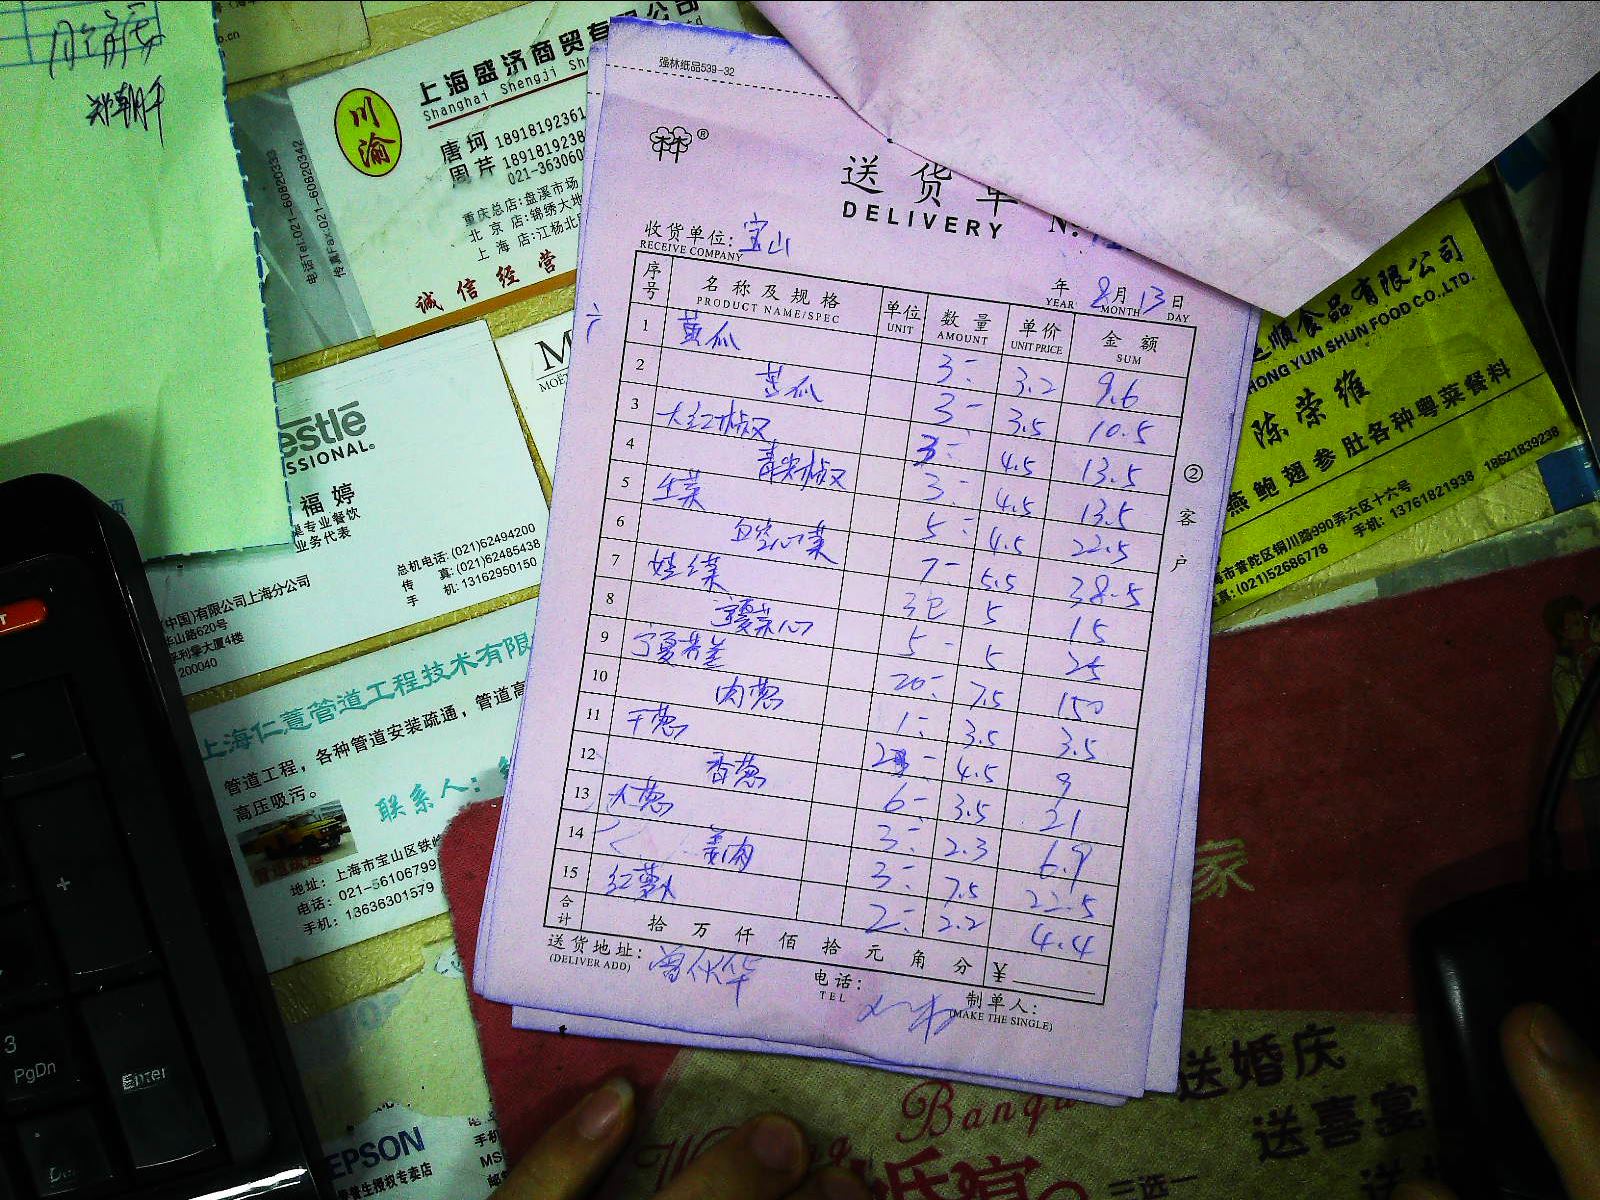 郑朝军
上海盛济商贸有限公司
Shanghai Shengji
川渝
唐珂 18918192361
周芹 1891819238
021-363060
重庆总店:盘溪市场
北京店:锦绣大地
上海店:江杨北
诚信经营
电话Tel:021-60820333
传真Fax:021-60820342
强林纸品539-32
林®
送货单
DELIVERY
收货单位: 宝山
RECEIVE COMPANY
年 8月 13日
YEAR MONTH DAY
序号 名称及规格 单位 数量 单价 金额
PRODUCT NAME/SPEC UNIT AMOUNT UNIT PRICE SUM
1 黄瓜 3 3.2 9.6
2 苦瓜 3 3.5 10.5
3 大红椒 3 4.5 13.5
4 青尖椒 3 4.5 13.5
5 生菜 5 4.5 22.5
6 空心菜 7 5.5 38.5
7 娃菜 3包 5 15
8 菜心 5 5 25
9 20 7.5 150
10 肉葱 1 3.5 3.5
11 干葱 2 4.5 9
12 香葱 6 3.5 21
13 大葱 3 2.3 6.9
14 姜肉 3 7.5 22.5
15 红萝卜 2 2.2 4.4
合计 拾万仟佰拾元角分 ¥
送货地址:
(DELIVER ADD)
电话:
TEL
制单人:
(MAKE THE SINGLE)
② 客户
顺食品有限公司
HONG YUN SHUN FOOD CO.,LTD.
陈荣维
燕鲍翅参肚各种粤菜餐料
海市普陀区铜川路990弄六区十六号
真:(021)52686778
手机: 13761821938 18621839238
estlé
SSIONAL®
福婷
专业餐饮
业务代表
总机电话:(021)62494200
传真:(021)62485438
手机:13162950150
(中国)有限公司上海分公司
华山路620号
利擎大厦4楼
200040
上海仁薏管道工程技术有限
管道工程,各种管道安装疏通,管道高
高压吸污。
联系人:
地址:上海市宝山区铁
电话:021-56106799
手机:13636301579
EPSON
普生授权专卖店
3
PgDn
Enter
+
家
送婚庆
送喜宴
三选一